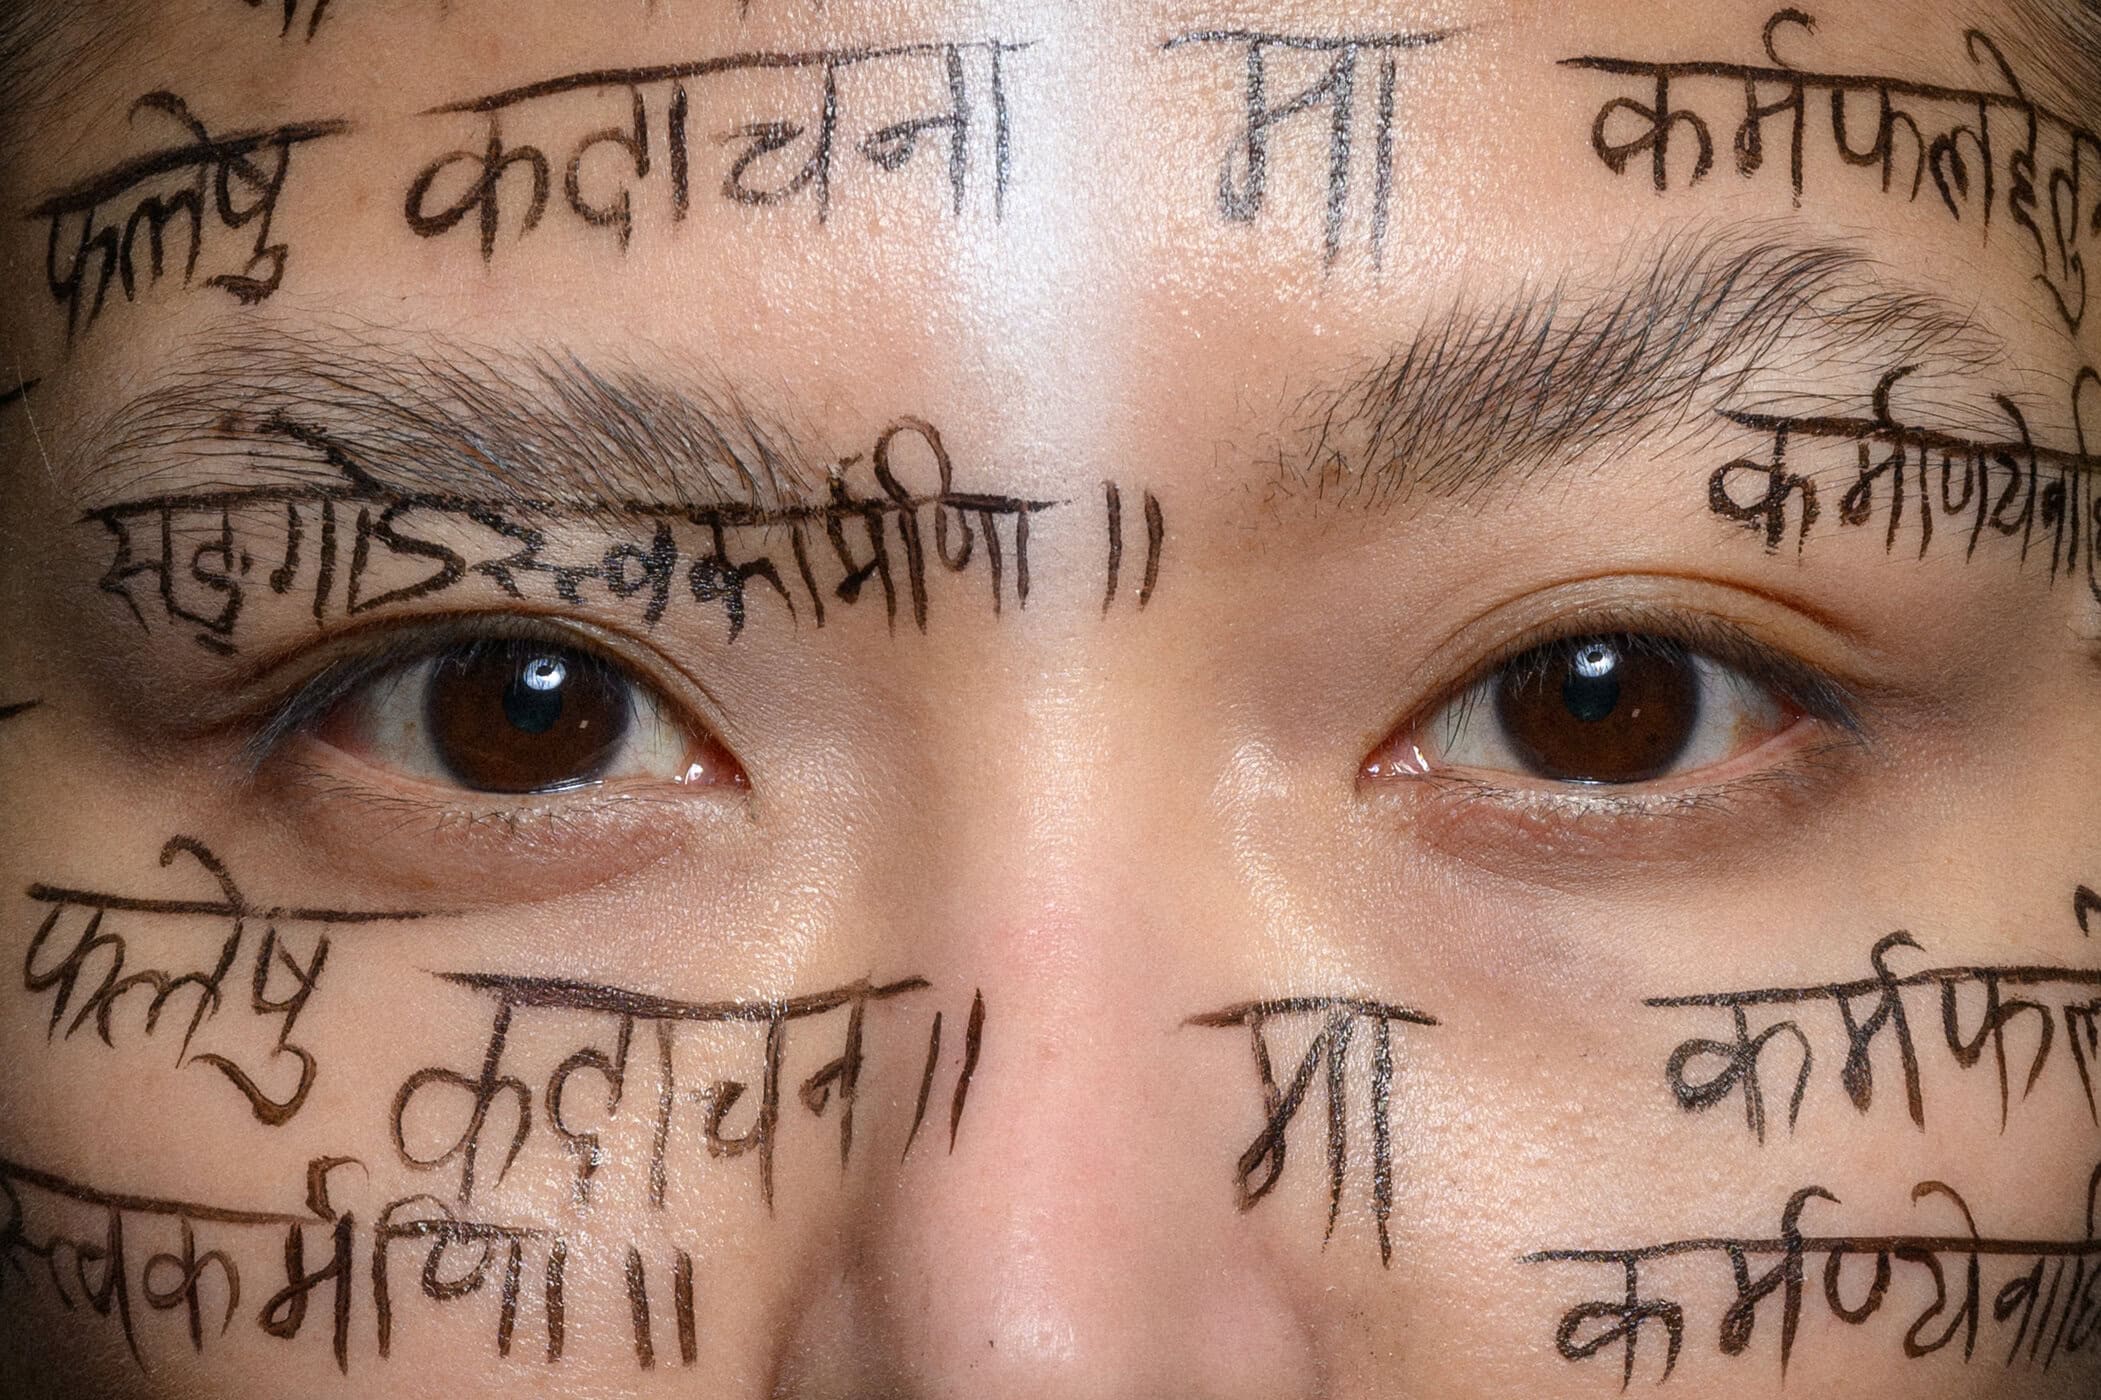 फलेषु कदाचना मा कर्मफलहेतु
सङ्गोऽस्त्वकार्मणि ॥
कर्मण्येवाधि
फलेषु कदाचन ॥ मा कर्मफल
स्त्वकर्मणि ॥ कर्मण्येवाधि